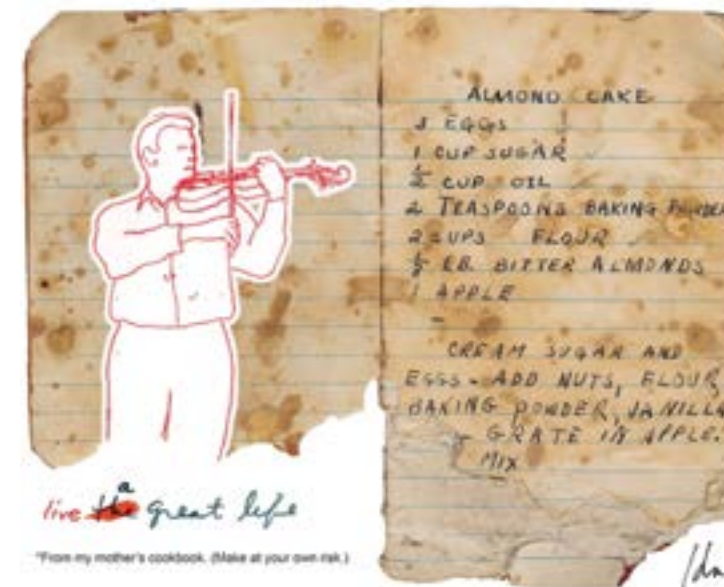 ALMOND CAKE
3 EGGS
1 CUP SUGAR
½ CUP OIL
2 TEASPOONS BAKING POWDER
2 CUPS FLOUR
LB. BITTER ALMONDS
1 APPLE
CREAM SUGAR AND
EGGS - ADD NUTS, FLOUR,
BAKING POWDER, VANILLA
GRATE IN APPLE.
MIX
live the a great life
*From my mother's cookbook. (Make at your own risk.)